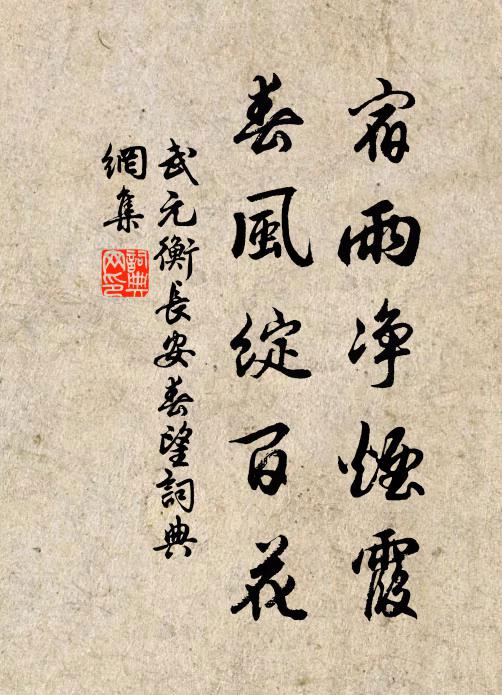 宿雨净煙霞
春風綻百花
武元衡長安春望詞典
網集
詞典網印